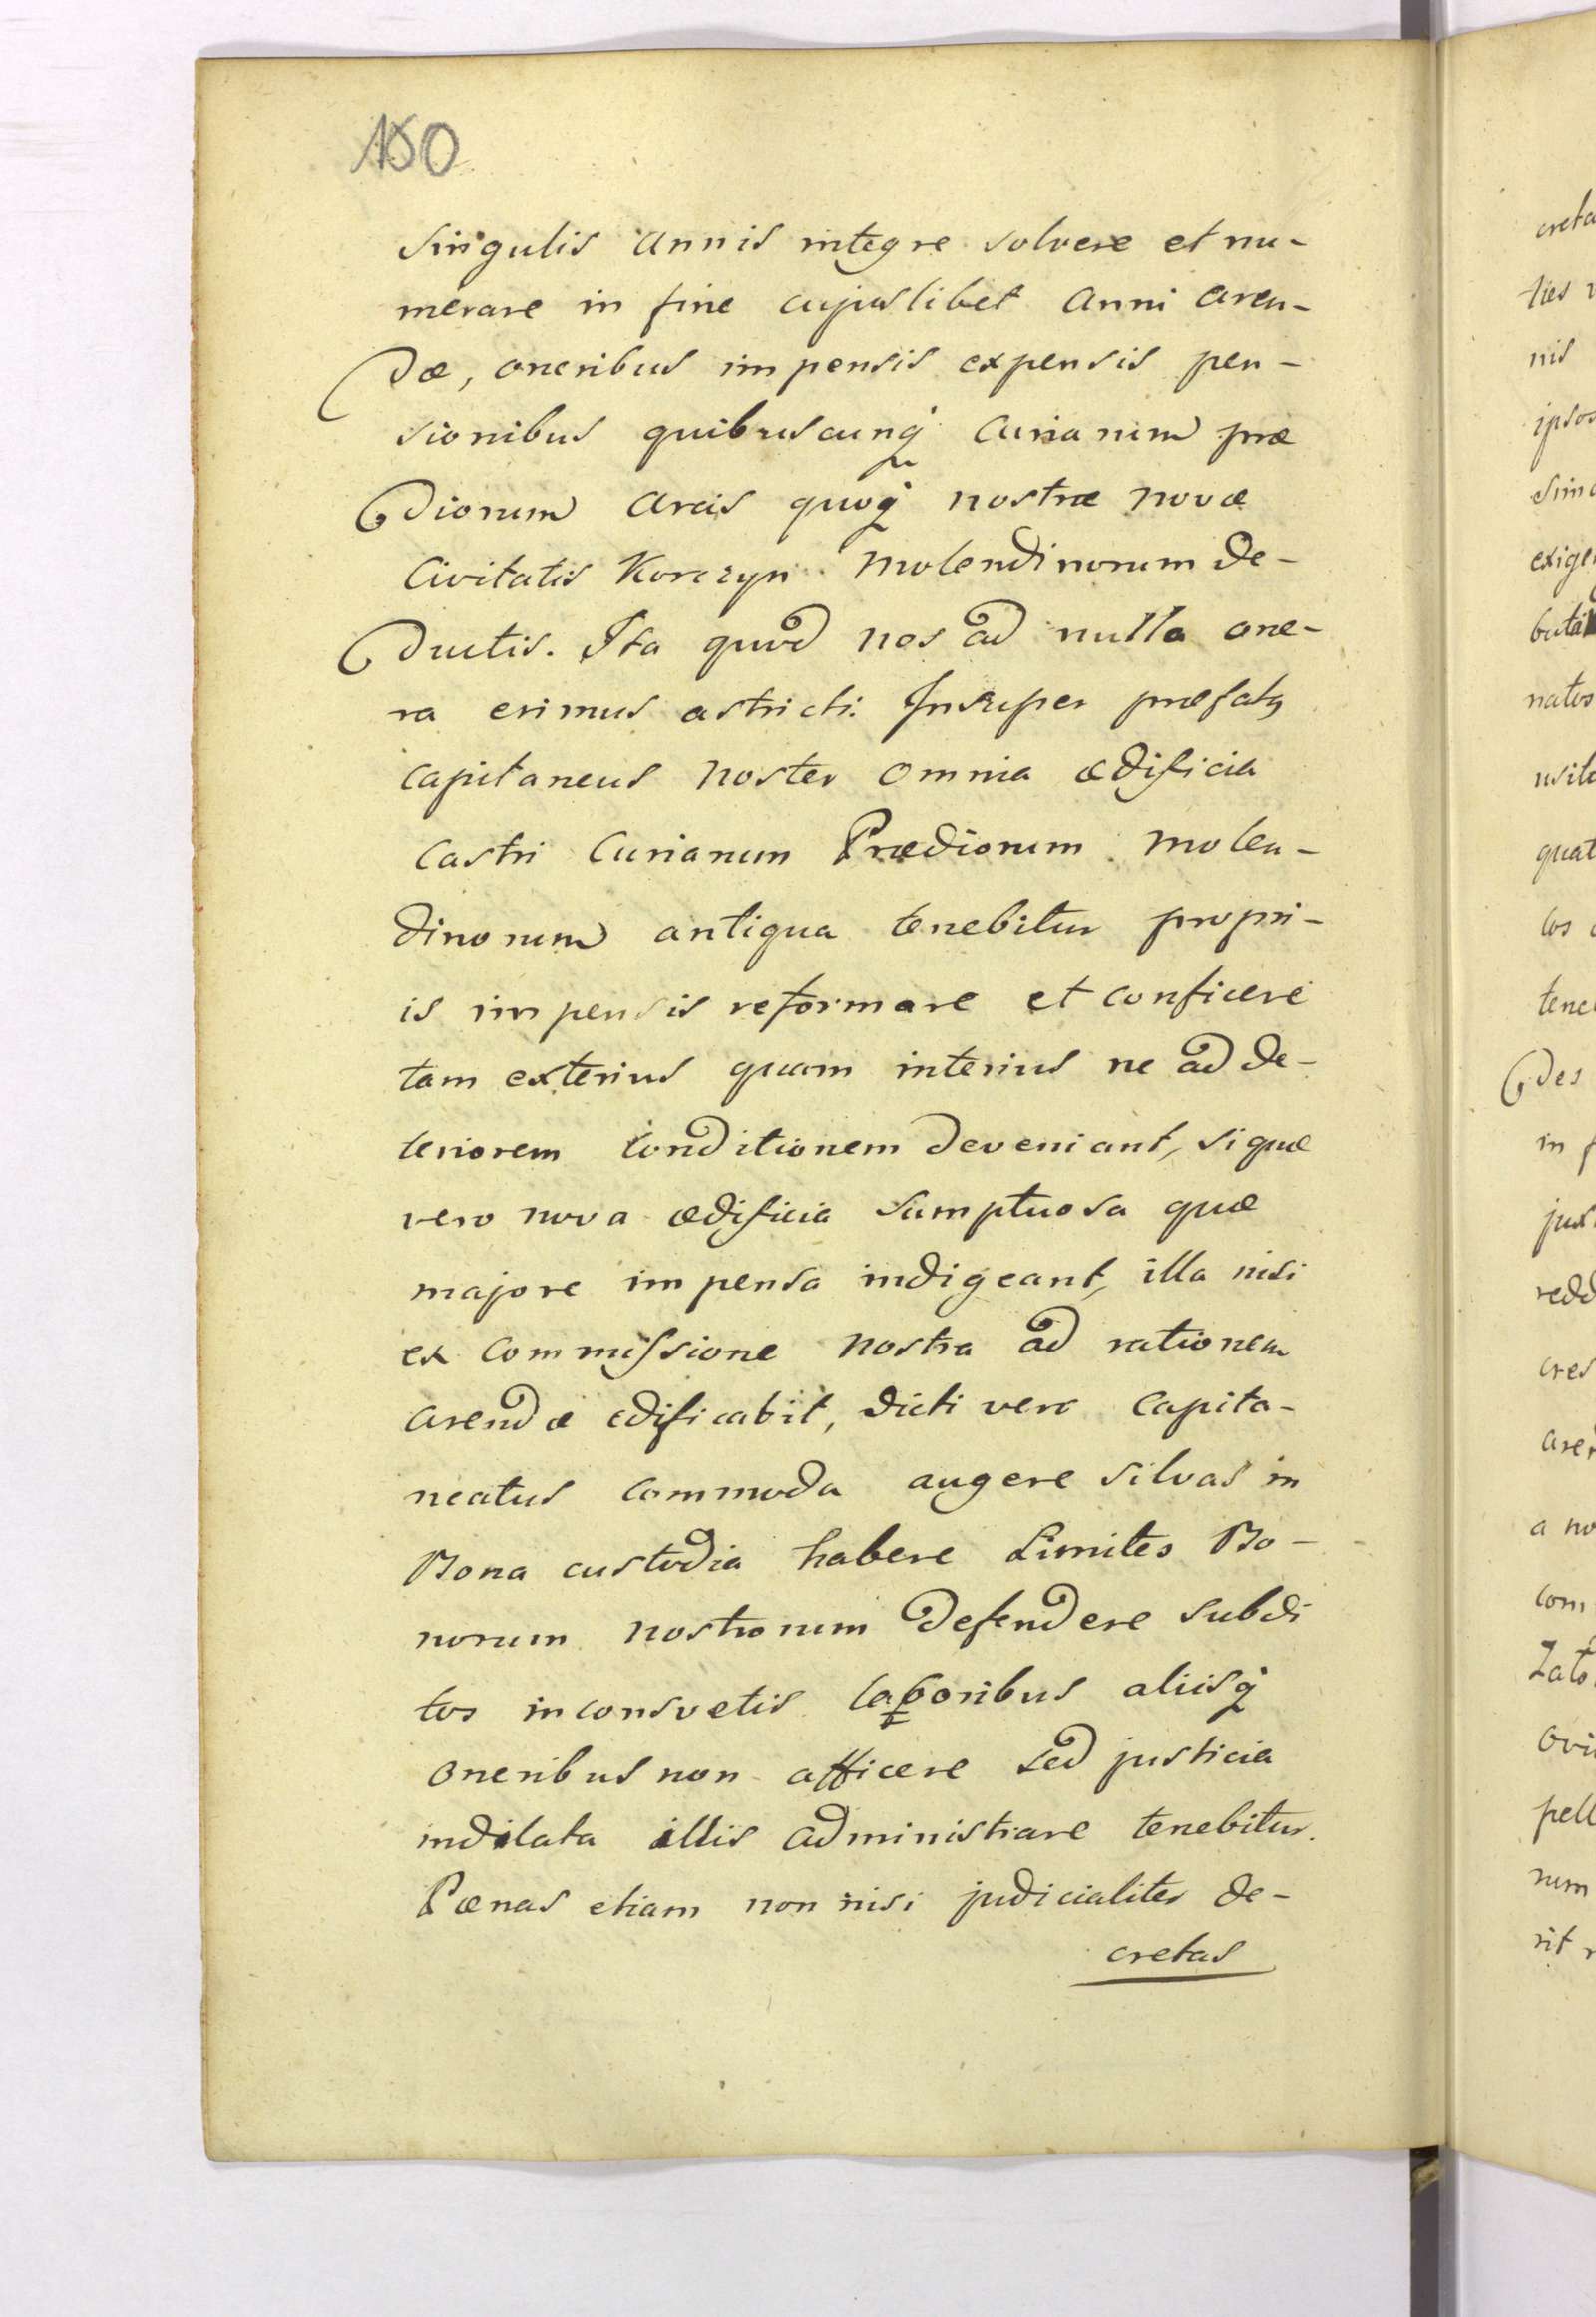 150
singulis annis integre solvere et nu-
merare in fine cujuslibet anni aren-
dæ, oneribus impensis expensis pen-
sionibus quibuscunq̇ Curiarum præ
diorum arcis quoq̇ nostræ novæ
Civitatis Korczyn Molendinorum de-
ductis. Ita quod nos ad nulla one-
ra erimus astricti. Insuper præfatꝰ
capitaneus noster omnia ædificia
Castri Curiarum Prædiorum molen-
dinorum antiqua tenebitur propri-
is impensis reformare et conficere
tam exterius quam interius ne ad de-
teriorem conditionem deveniant, si quæ
vero nova ædificia sumptuosa quæ
majore impensa indigeant, illa nisi
ex commissione nostra ad rationem
arendæ edificabit, dicti vero Capita-
neatus commoda augere silvas in
Bona custodia habere Limites Bo-
norum nostrorum defendere subdi
tos inconsvetis laboribus aliisq̇
oneribus non afficere sed justicia
indilata illis administrare tenebitur.
Pœnas etiam non nisi judicialiter de-
cretas
creta
ties
nis
ipsos
exige
natos
quat
los
tene
des
in
redd
cres
a no
com
Zato
ovi
pell
num
rit